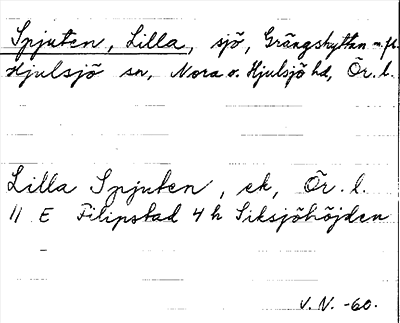 Spjuten, Lilla, sjö, Grängshyttan m. fl.
Hjulsjö sn, Nora o. Hjulsjö hd, Ör. l.
Lilla Spjuten, ek, Ör. l.
11 E Filipstad 4 h Siksjöhöjden
V. N. -60.